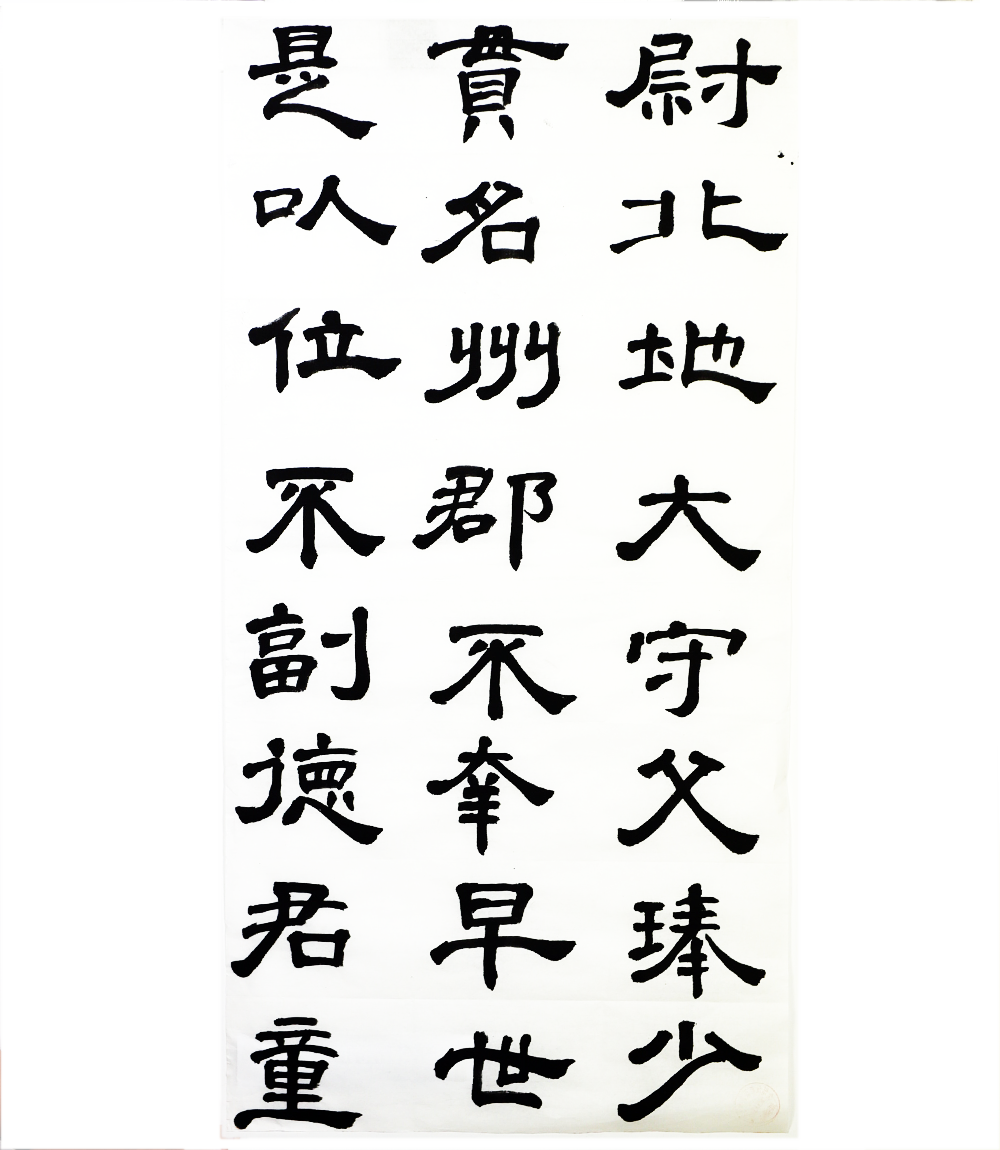 尉北地大守父琫少
貫名州郡不幸早世
是以位不副德君童